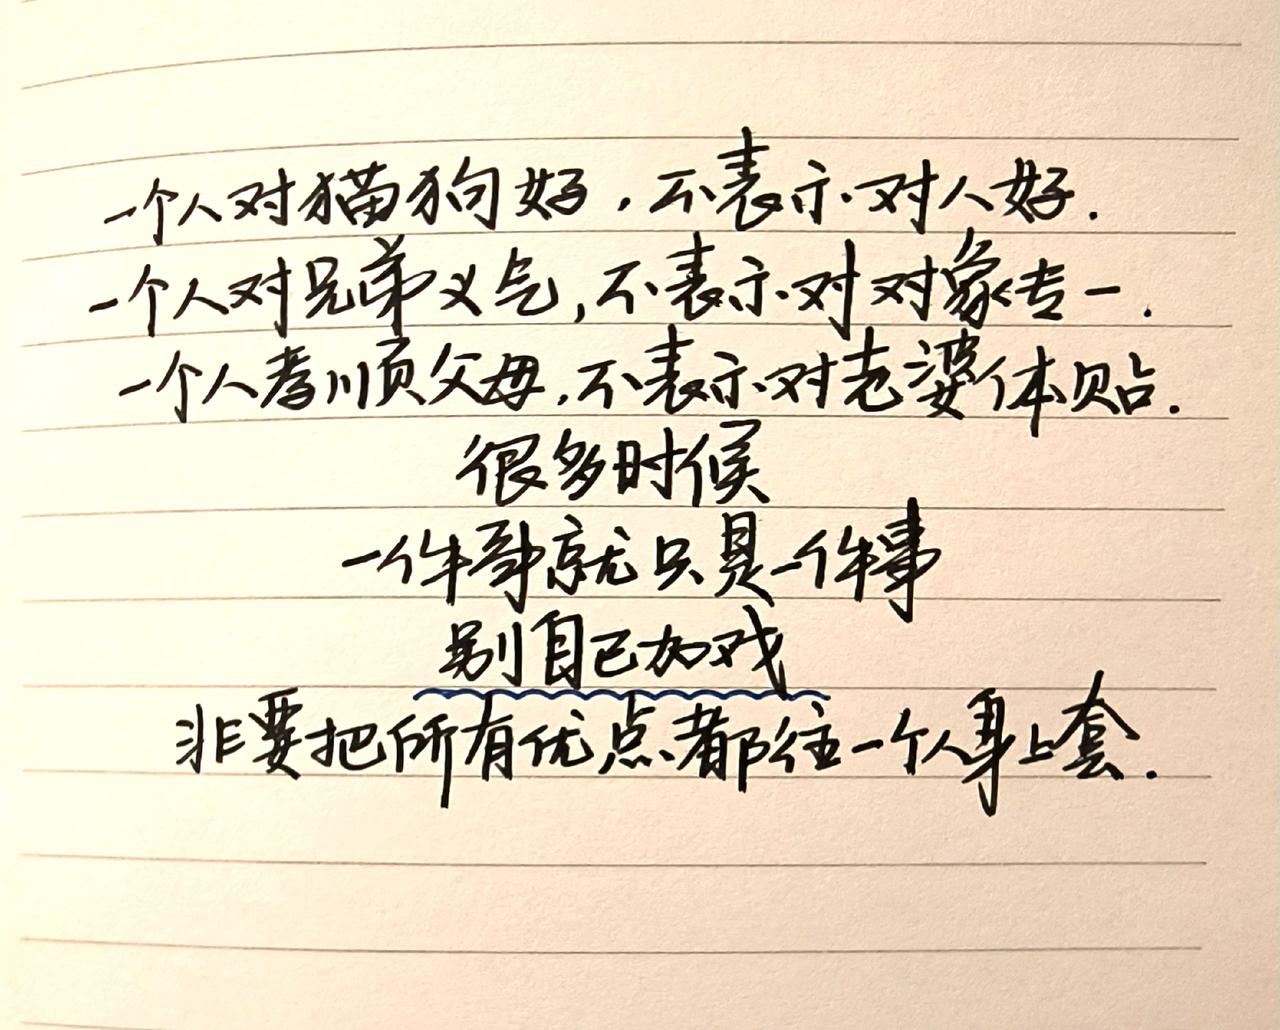 一个人对猫狗好，不表示对人好.
一个人对兄弟义气,不表示对对象专一.
一个人孝顺父母,不表示对老婆体贴.
很多时候
一件事就只是一件事
别自己加戏
非要把所有优点都往一个人身上套.